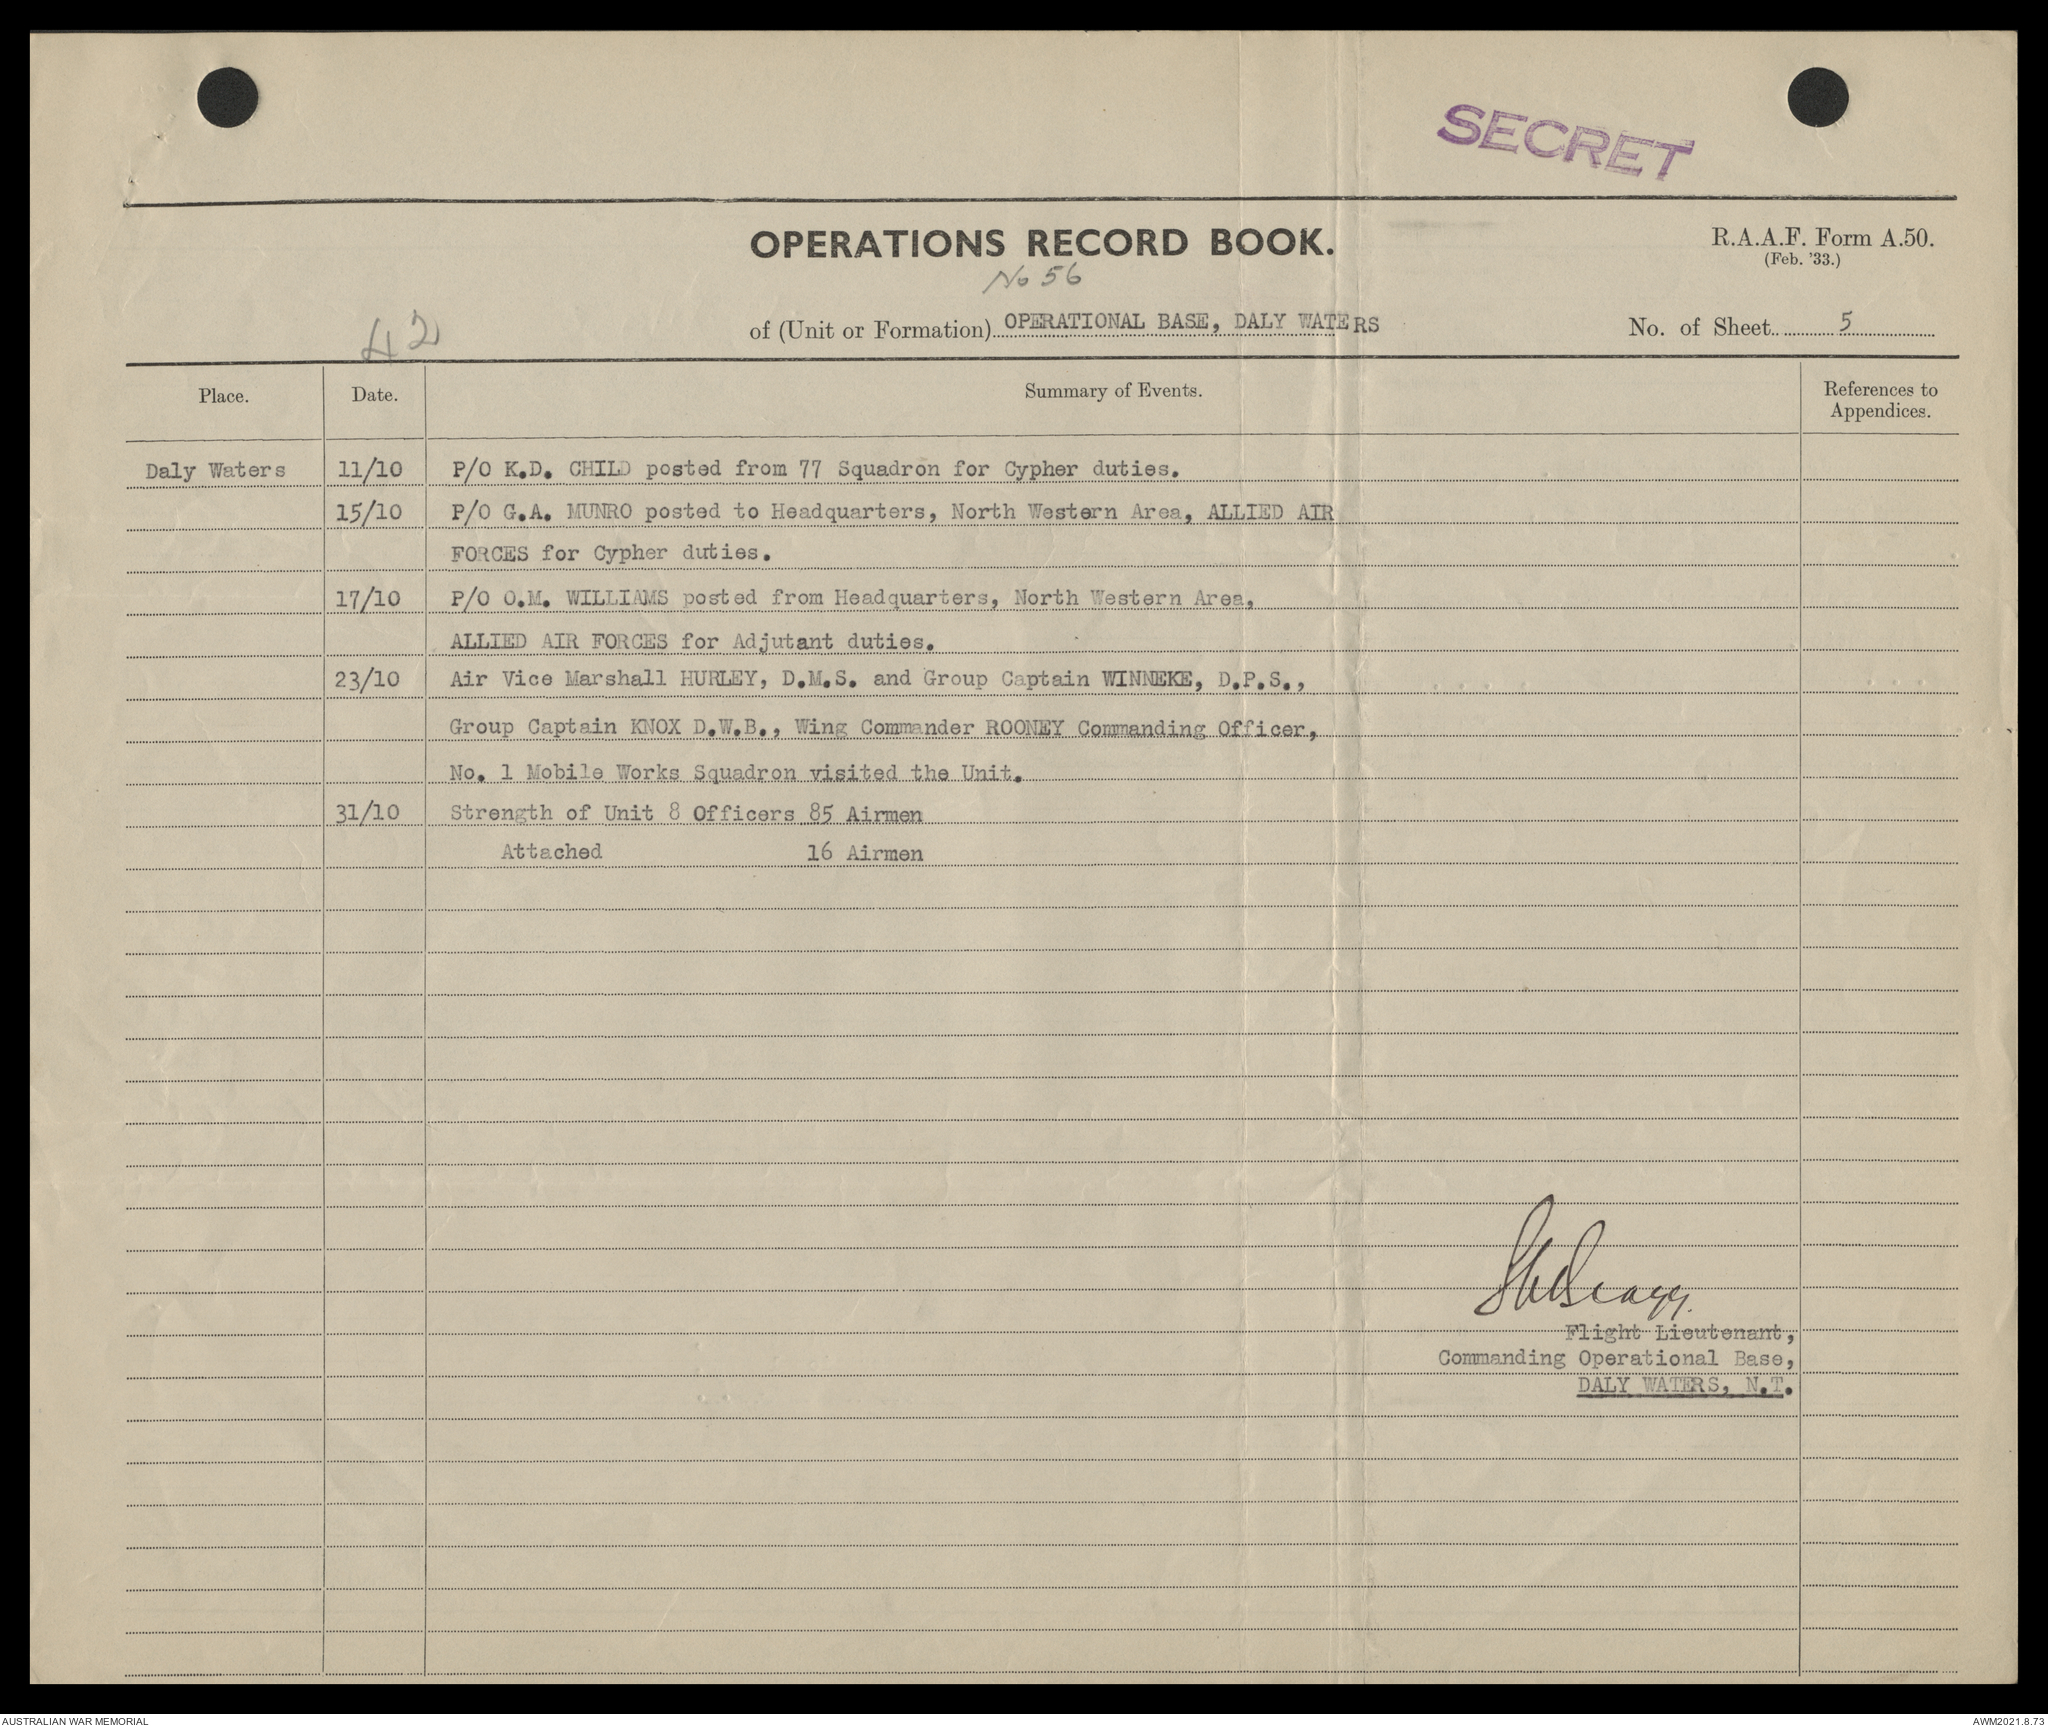 SECRET
OPERATIONS RECORD BOOK.
R.A.A.F. Form A.50.
(Feb. '33.)
No 56
42
of (Unit or Formation) OPERATIONAL BASE, DALY WATERS
No. of Sheet 5
Place. Date. Summary of Events. References to Appendices.
Daly Waters 11/10 P/O K.D. CHILD posted from 77 Squadron for Cypher duties.
15/10 P/O G.A. MUNRO posted to Headquarters, North Western Area, ALLIED AIR
FORCES for Cypher duties.
17/10 P/O O.M. WILLIAMS posted from Headquarters, North Western Area,
ALLIED AIR FORCES for Adjutant duties.
23/10 Air Vice Marshall HURLEY, D.M.S. and Group Captain WINNEKE, D.P.S.,
Group Captain KNOX D.W.B., Wing Commander ROONEY Commanding Officer,
No. 1 Mobile Works Squadron visited the Unit.
31/10 Strength of Unit 8 Officers 85 Airmen
Attached 16 Airmen
Flight Lieutenant,
Commanding Operational Base,
DALY WATERS, N.T.
AUSTRALIAN WAR MEMORIAL
AWM2021.8.73